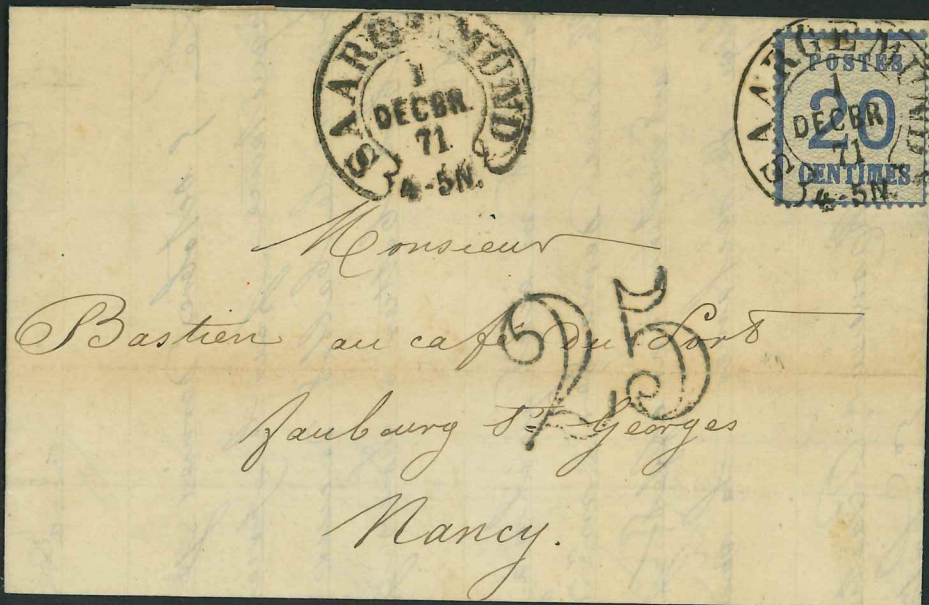 SAARGEMÜND
1
DECBR.
71
4-5N.
SAARGEMÜND
1
DECBR
71
4-5N.
POSTES
20
CENTIMES
Monsieur
Bastien au café du Port
25
faubourg St Georges
Nancy.